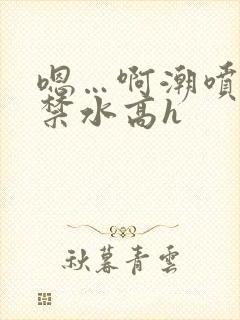 嗯…啊潮喷
禁水高h
秋暮青雲